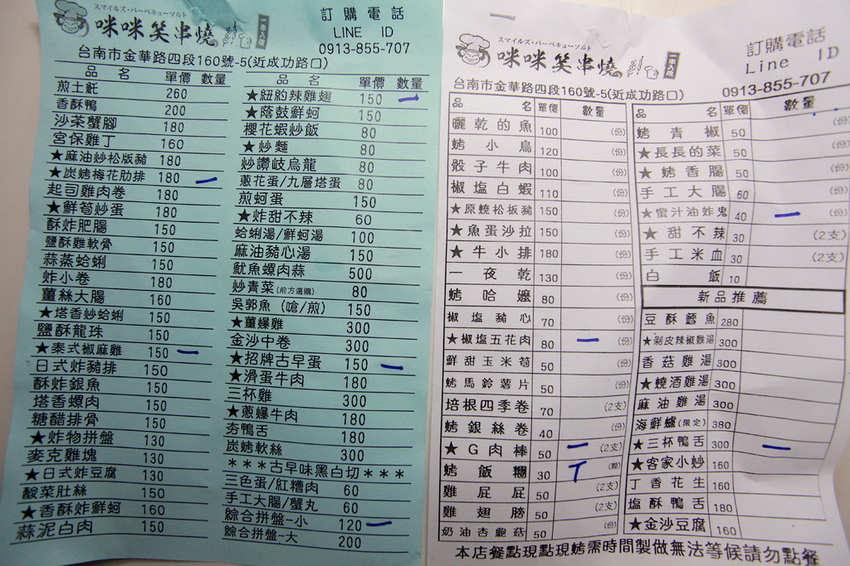 スマイルズ・バーベキューソルト
咪咪笑串燒
訂購電話
LINE ID
0913-855-707
台南市金華路四段160號-5(近成功路口)
品名 單價 數量
煎土魠 260
香酥鴨 200
沙茶蟹腳 180
宮保雞丁 160
★麻油炒松版豬 180
★炭烤梅花肋排 180 一
起司雞肉卷 180
★鮮筍炒蛋 180
酥炸肥腸 150
鹽酥雞軟骨 150
蒜蒸蛤蜊 150
炸小卷 180
薑絲大腸 160
★塔香炒蛤蜊 150
鹽酥龍珠 150
★泰式椒麻雞 150 一
日式炸豬排 150
酥炸銀魚 150
塔香螺肉 150
糖醋排骨 150
★炸物拼盤 130
麥克雞塊 130
★日式炸豆腐 130
酸菜肚絲 150
★香酥炸鮮蚵 160
蒜泥白肉 150
品名 單價 數量
★紐約辣雞翅 150 一
★蔭鼓鮮蚵 150
櫻花蝦炒飯 80
★炒麵 80
炒讚岐烏龍 80
蔥花蛋/九層塔蛋 80
煎蚵蛋 150
★炸甜不辣 60
蛤蜊湯/鮮蚵湯 100
麻油豬心湯 150
魷魚螺肉蒜 500
炒青菜(前方選購) 80
吳郭魚(嗆/煎) 150
★薑爆雞 300
金沙中卷 300
★招牌古早蛋 150 一
★滑蛋牛肉 180
三杯雞 300
★蔥爆牛肉 180
夯鴨舌 180
炭烤軟絲 300
***古早味黑白切***
三色蛋/紅糟肉 60
手工大腸/蟹丸 60
綜合拼盤-小 120 一
綜合拼盤-大 200
スマイルズ・バーベキューソルト
咪咪笑串燒
訂購電話
Line ID
0913-855-707
台南市金華路四段160號-5(近成功路口)
品名 單價 數量
曬乾的魚 100 (份)
烤小鳥 120 (份)
骰子牛肉 100 (份)
椒塩白蝦 110 (份)
★原燒松板豬 150 (份)
★魚蛋沙拉 150 (份)
★牛小排 180 (份)
一夜乾 130 (份)
烤哈嬤 80 (份)
椒塩豬心 70 (份)
★椒塩五花肉 80 一 (份)
鮮甜玉米筍 50 (份)
烤馬鈴薯片 50 (份)
培根四季卷 70 (2支)
烤銀絲卷 40 (份)
★G肉棒 50 一 (2支)
烤飯糰 30 丅 (顆)
雞屁屁 50 (2支)
雞翅膀 50 (2支)
奶油杏鮑菇 50 (份)
品名 單價 數量
烤青椒 50 (份)
★長長的菜 50 (份)
★烤香腸 50 (份)
手工大腸 60 (份)
★蜜汁油炸鬼 40 一 (份)
★甜不辣 30 (2支)
手工米血 30 (2支)
白飯 10 (份)
新品推薦
豆酥鱈魚 280
★剝皮辣椒雞湯 300
香菇雞湯 300
★燒酒雞湯 300
麻油雞湯 300
海鮮爐(限定) 380
★三杯鴨舌 300 一
★客家小炒 160
丁香花生 160
塩酥鴨舌 180
★金沙豆腐 160
本店餐點現點現烤需時間製做無法等候請勿點餐